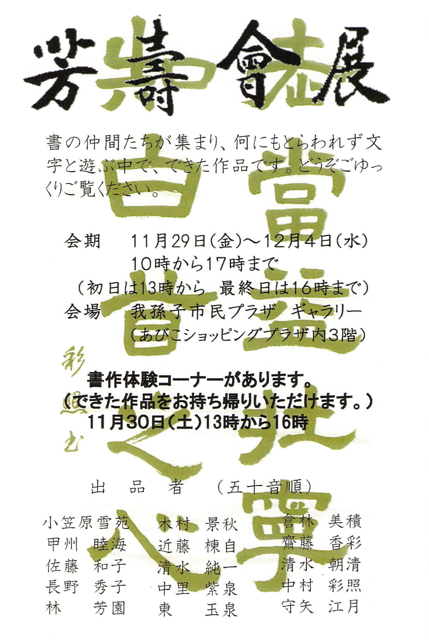 芳壽會展
當益壯寧
白首之心
彩照書
書の仲間たちが集まり、何にもとらわれず文
字と遊ぶ中で、できた作品です。どうぞごゆっ
くりご覧ください。
会期 11月29日(金)～12月4日(水)
10時から17時まで
(初日は13時から 最終日は16時まで)
会場 我孫子市民プラザ ギャラリー
(あびこショッピングプラザ内3階)
書作体験コーナーがあります。
(できた作品をお持ち帰りいただけます。)
11月30日(土)13時から16時
出品者 (五十音順)
小笠原雪苑 木村 景秋 倉林 美積
甲州 睦海 近藤 棟自 齋藤 香彩
佐藤 和子 清水 純一 清水 朝清
長野 秀子 中里 紫泉 中村 彩照
林 芳園 東 玉泉 守矢 江月